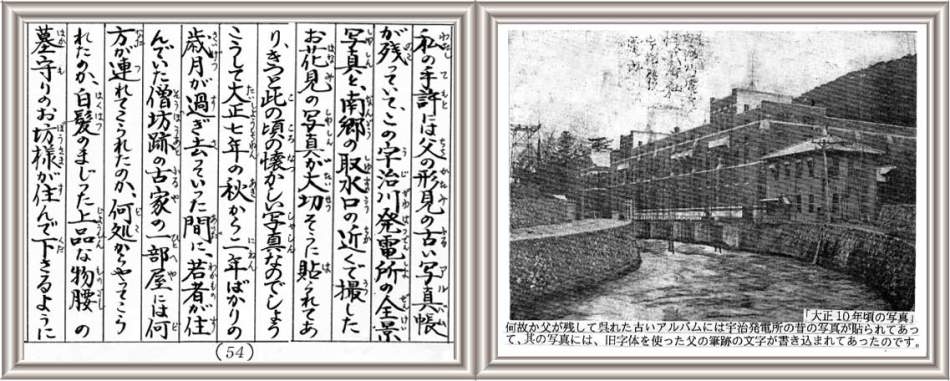 私の手許には父の形見の古い写真帳
が残っていて、この宇治川発電所の全景
写真と、南郷の取水口の近くで撮した
お花見の写真が大切そうに貼られてあ
り、きっと此の頃の懐かしい写真なのでしょう
こうして大正七年の秋から二年ばかりの
歳月が過ぎ去っていった間に、若者が住
んでいた僧坊跡の古家の一部屋には何
方が連れてこられたのか、何処からやってこら
れたのか、白髪のまじった上品な物腰の
墓守りのお坊様が住んで下さるように
(54)
「大正10年頃の写真」
何故か父が残して呉れた古いアルバムには宇治発電所の昔の写真が貼られてあっ
て、其の写真には、旧字体を使った父の筆跡の文字が書き込まれてあったのです。